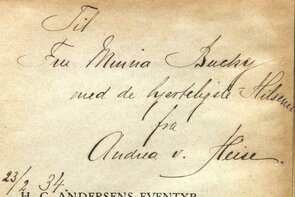 Til
Fru Minna Buchy
med de hjerteligste Hilsener
fra
Andrea v. Heise.
23/2 34.
H. C. ANDERSENS EVENTYR